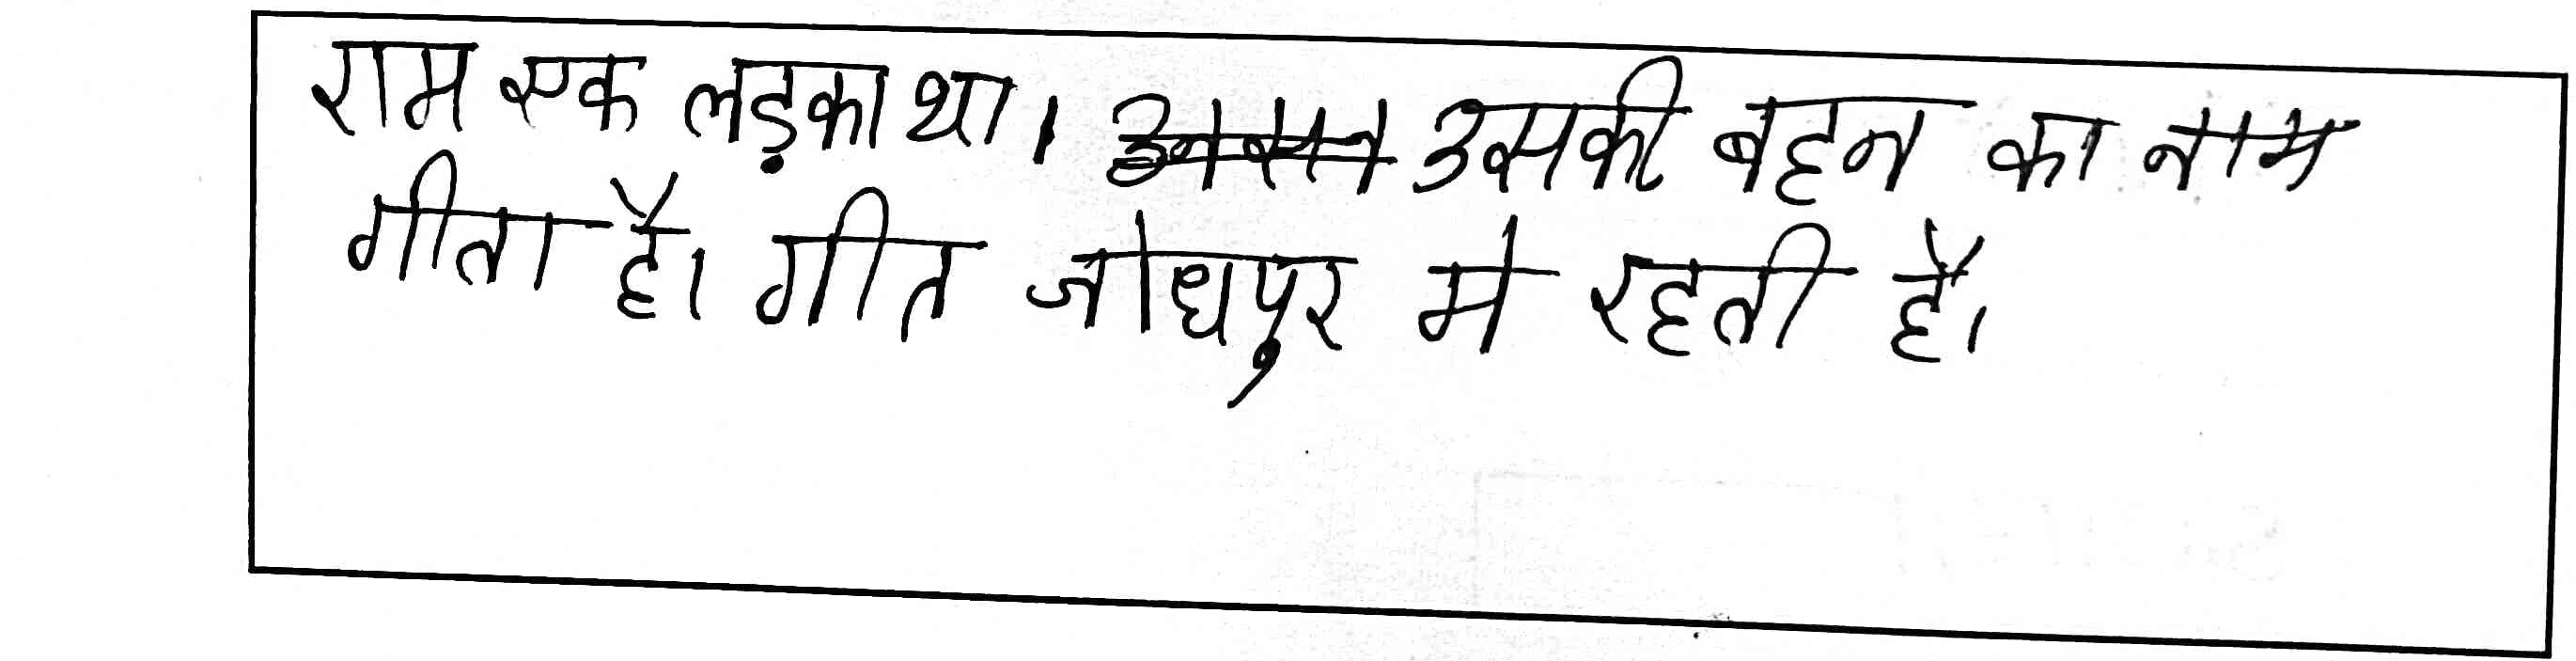 राम एक लड़का था। उसकी बहन का नाम
गीता है। गीत जोधपुर मे रहती है।